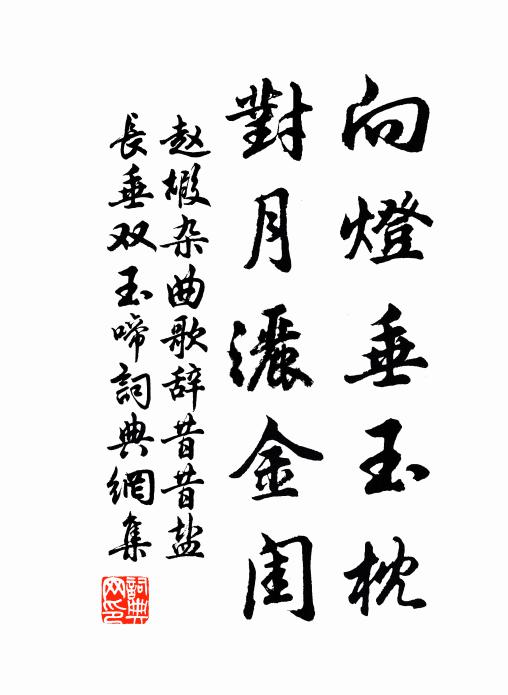 向燈垂玉枕
對月灑金閨
赵嘏杂曲歌辞昔昔盐
長垂双玉啼詞典網集
詞典网印